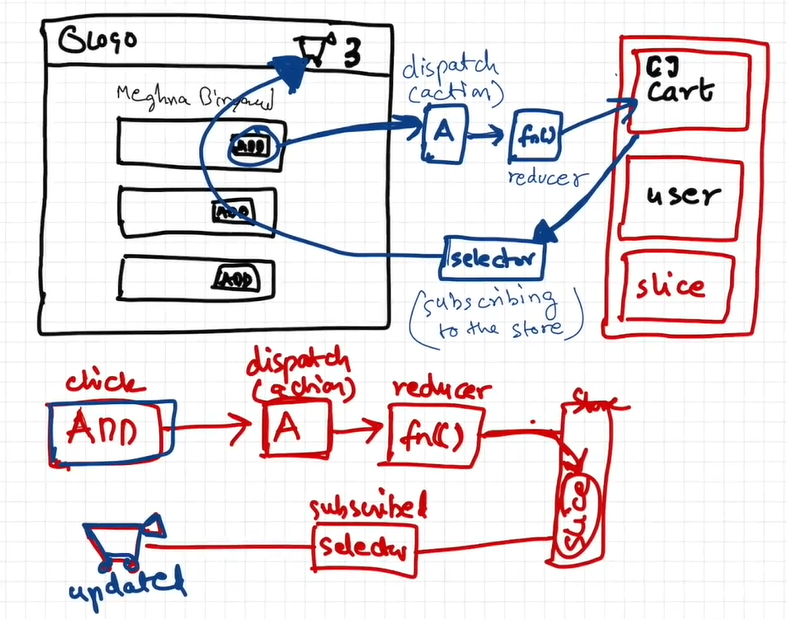 LOGO
3
Meghna Bi
ADD
ADD
ADD
dispatch
(action)
A
fn()
reducer
cart
user
slice
selector
(subscribing
to the store)
click
ADD
dispatch
(action)
A
reducer
fn()
store
slice
subscribed
selector
updated